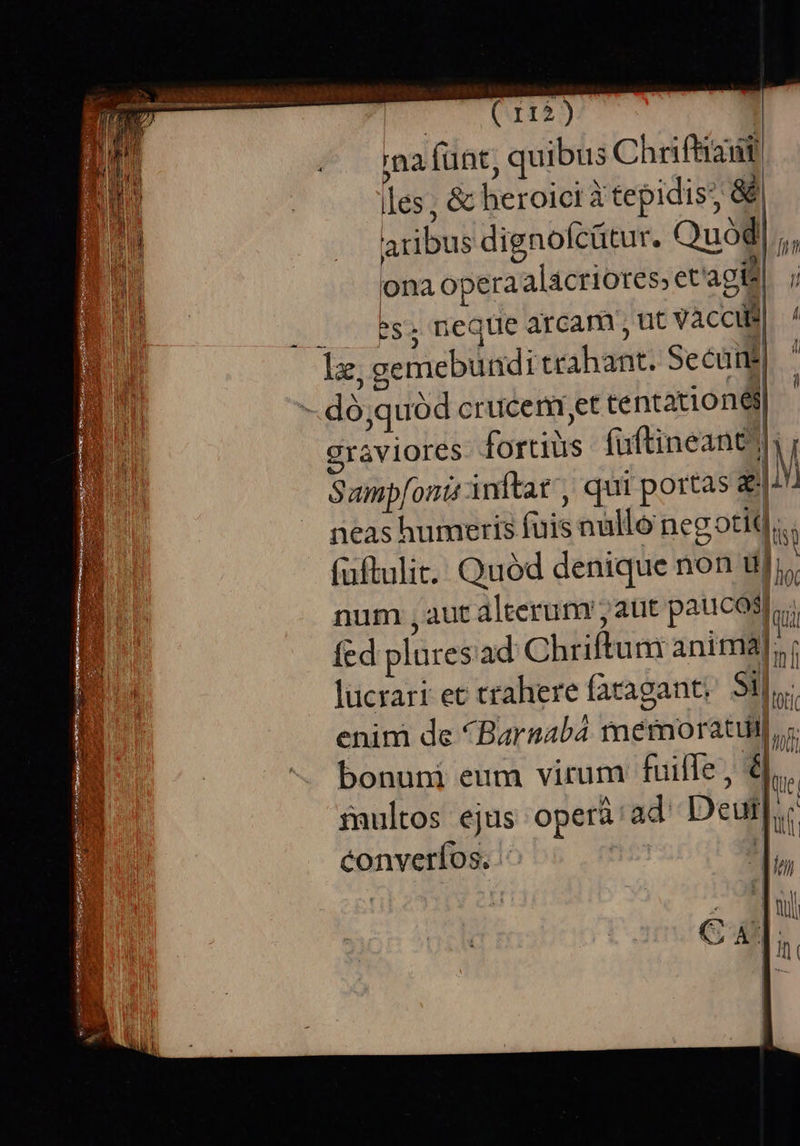 (112)
ına ſunt, quibus Chriſtiani
lles, & heroici à tepidis, &
aribus dignoſcūtur. Quòd
ona opera alacriores, et agi
es, neque arcam, ut vaccu
læ, gemebundi trahant. Secun
dò, quòd crucem, et tentationes
graviores fortiùs ſuſtineant,
Sampſonis inſtar, qui portas æ
neas humeris ſuis nullo negotio
ſuſtulit. Quòd denique non u
num, aut alterum, aut paucos,
ſed plures ad Chriſtum anima
lucrari et trahere ſatagant. Si
enim de Barnabâ memoratum
bonum eum virum fuiſſe, &
multos ejus operâ ad Deum
converſos.
CA